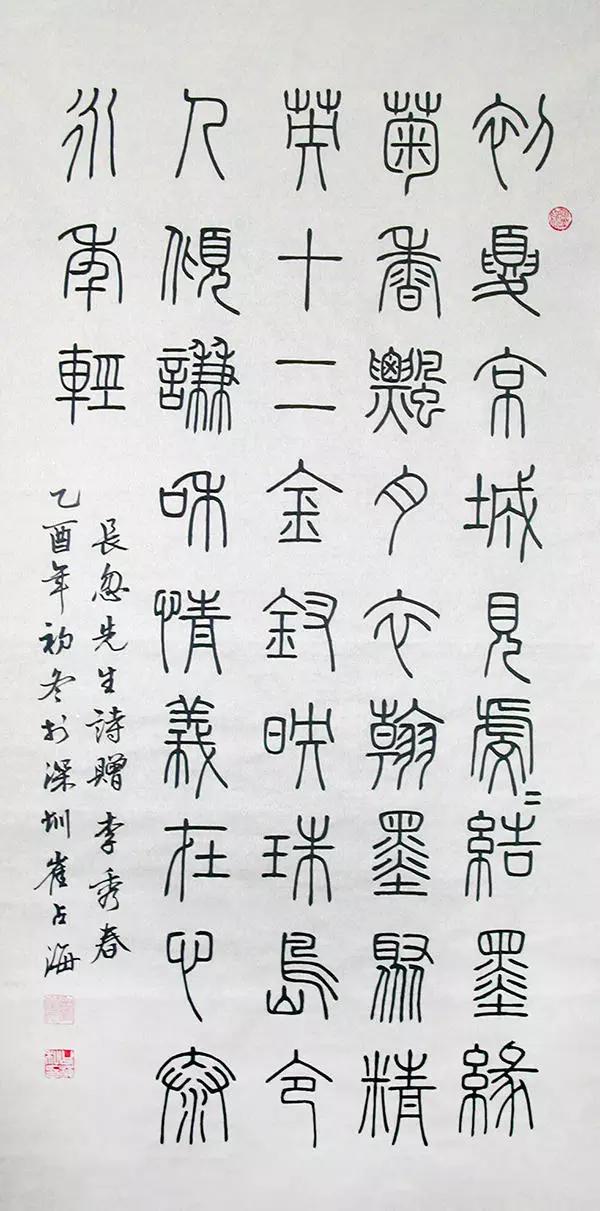 初夏京城見虔=結墨緣
菊香飄夕衣翰墨聚精
英十二金釵映珠島令
人傾謙和情義在心泰
永年輕
長忽先生詩贈李秀春
乙酉年初冬於深圳崔占海